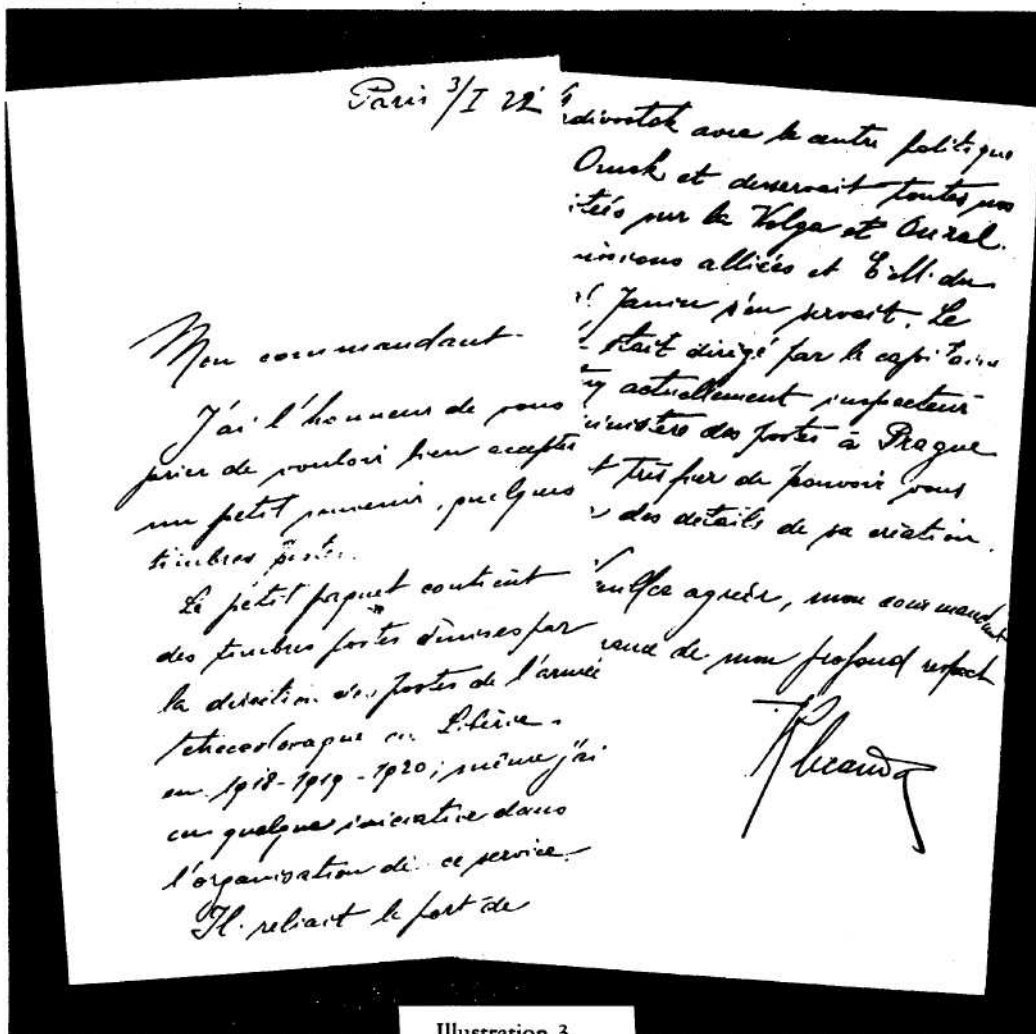 Paris 3/I 22
Mon commandant
J'ai l'honneur de vous
prier de vouloir bien accepter
un petit souvenir, quelques
timbres postes.
Le petit paquet contient
des timbres postes émises par
la direction des postes de l'armée
tchecoslovaque en Sibérie
en 1918-1919-1920; même j'ai
eu quelque iniciative dans
l'organisation de ce service.
Il reliait le port de
divostok avec le centre politique
Omsk et desservait toutes nos
ités sur la Volga et Oural.
missions alliées et E.M. du
Janin s'en servait. Le
était dirigé par le capitaine
actuellement inspecteur
ministère des postes à Prague
t très fier de pouvoir vous
des détails de sa création.
euillez agréer, mon commandant
rance de mon profond respect
Illustration 3